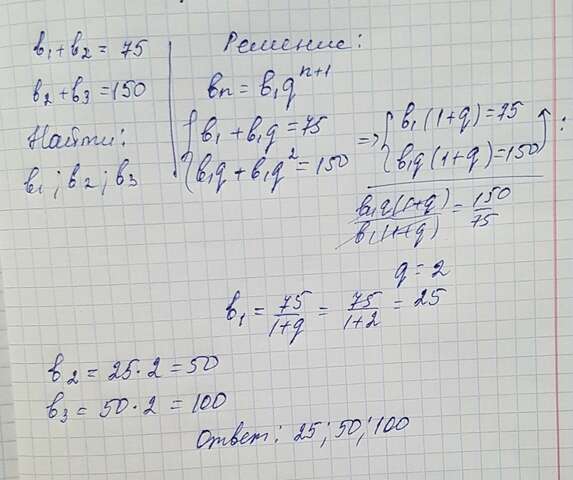 b₁ + b₂ = 75
b₂ + b₃ = 150
Найти:
b₁ ; b₂ ; b₃
Решение:
bn = b₁qⁿ⁺¹
{ b₁ + b₁q = 75
{ b₁q + b₁q² = 150
=> { b₁(1+q) = 75
{ b₁q(1+q) = 150 :
b₁q(1+q) / b₁(1+q) = 150 / 75
q = 2
b₁ = 75 / 1+q = 75 / 1+2 = 25
b₂ = 25·2 = 50
b₃ = 50·2 = 100
Ответ: 25; 50; 100